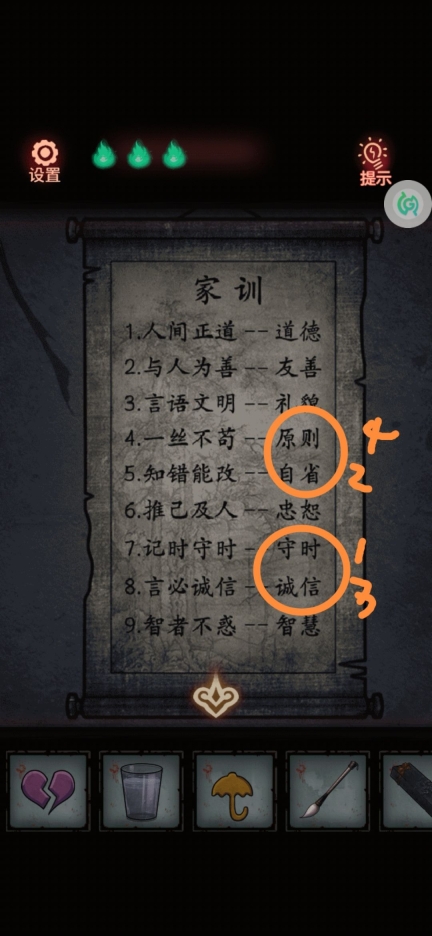 设置
提示
家训
1.人间正道--道德
2.与人为善--友善
3.言语文明--礼貌
4.一丝不苟--原则 4
5.知错能改--自省 2
6.推己及人--忠恕
7.记时守时--守时 1
8.言必诚信--诚信 3
9.智者不惑--智慧